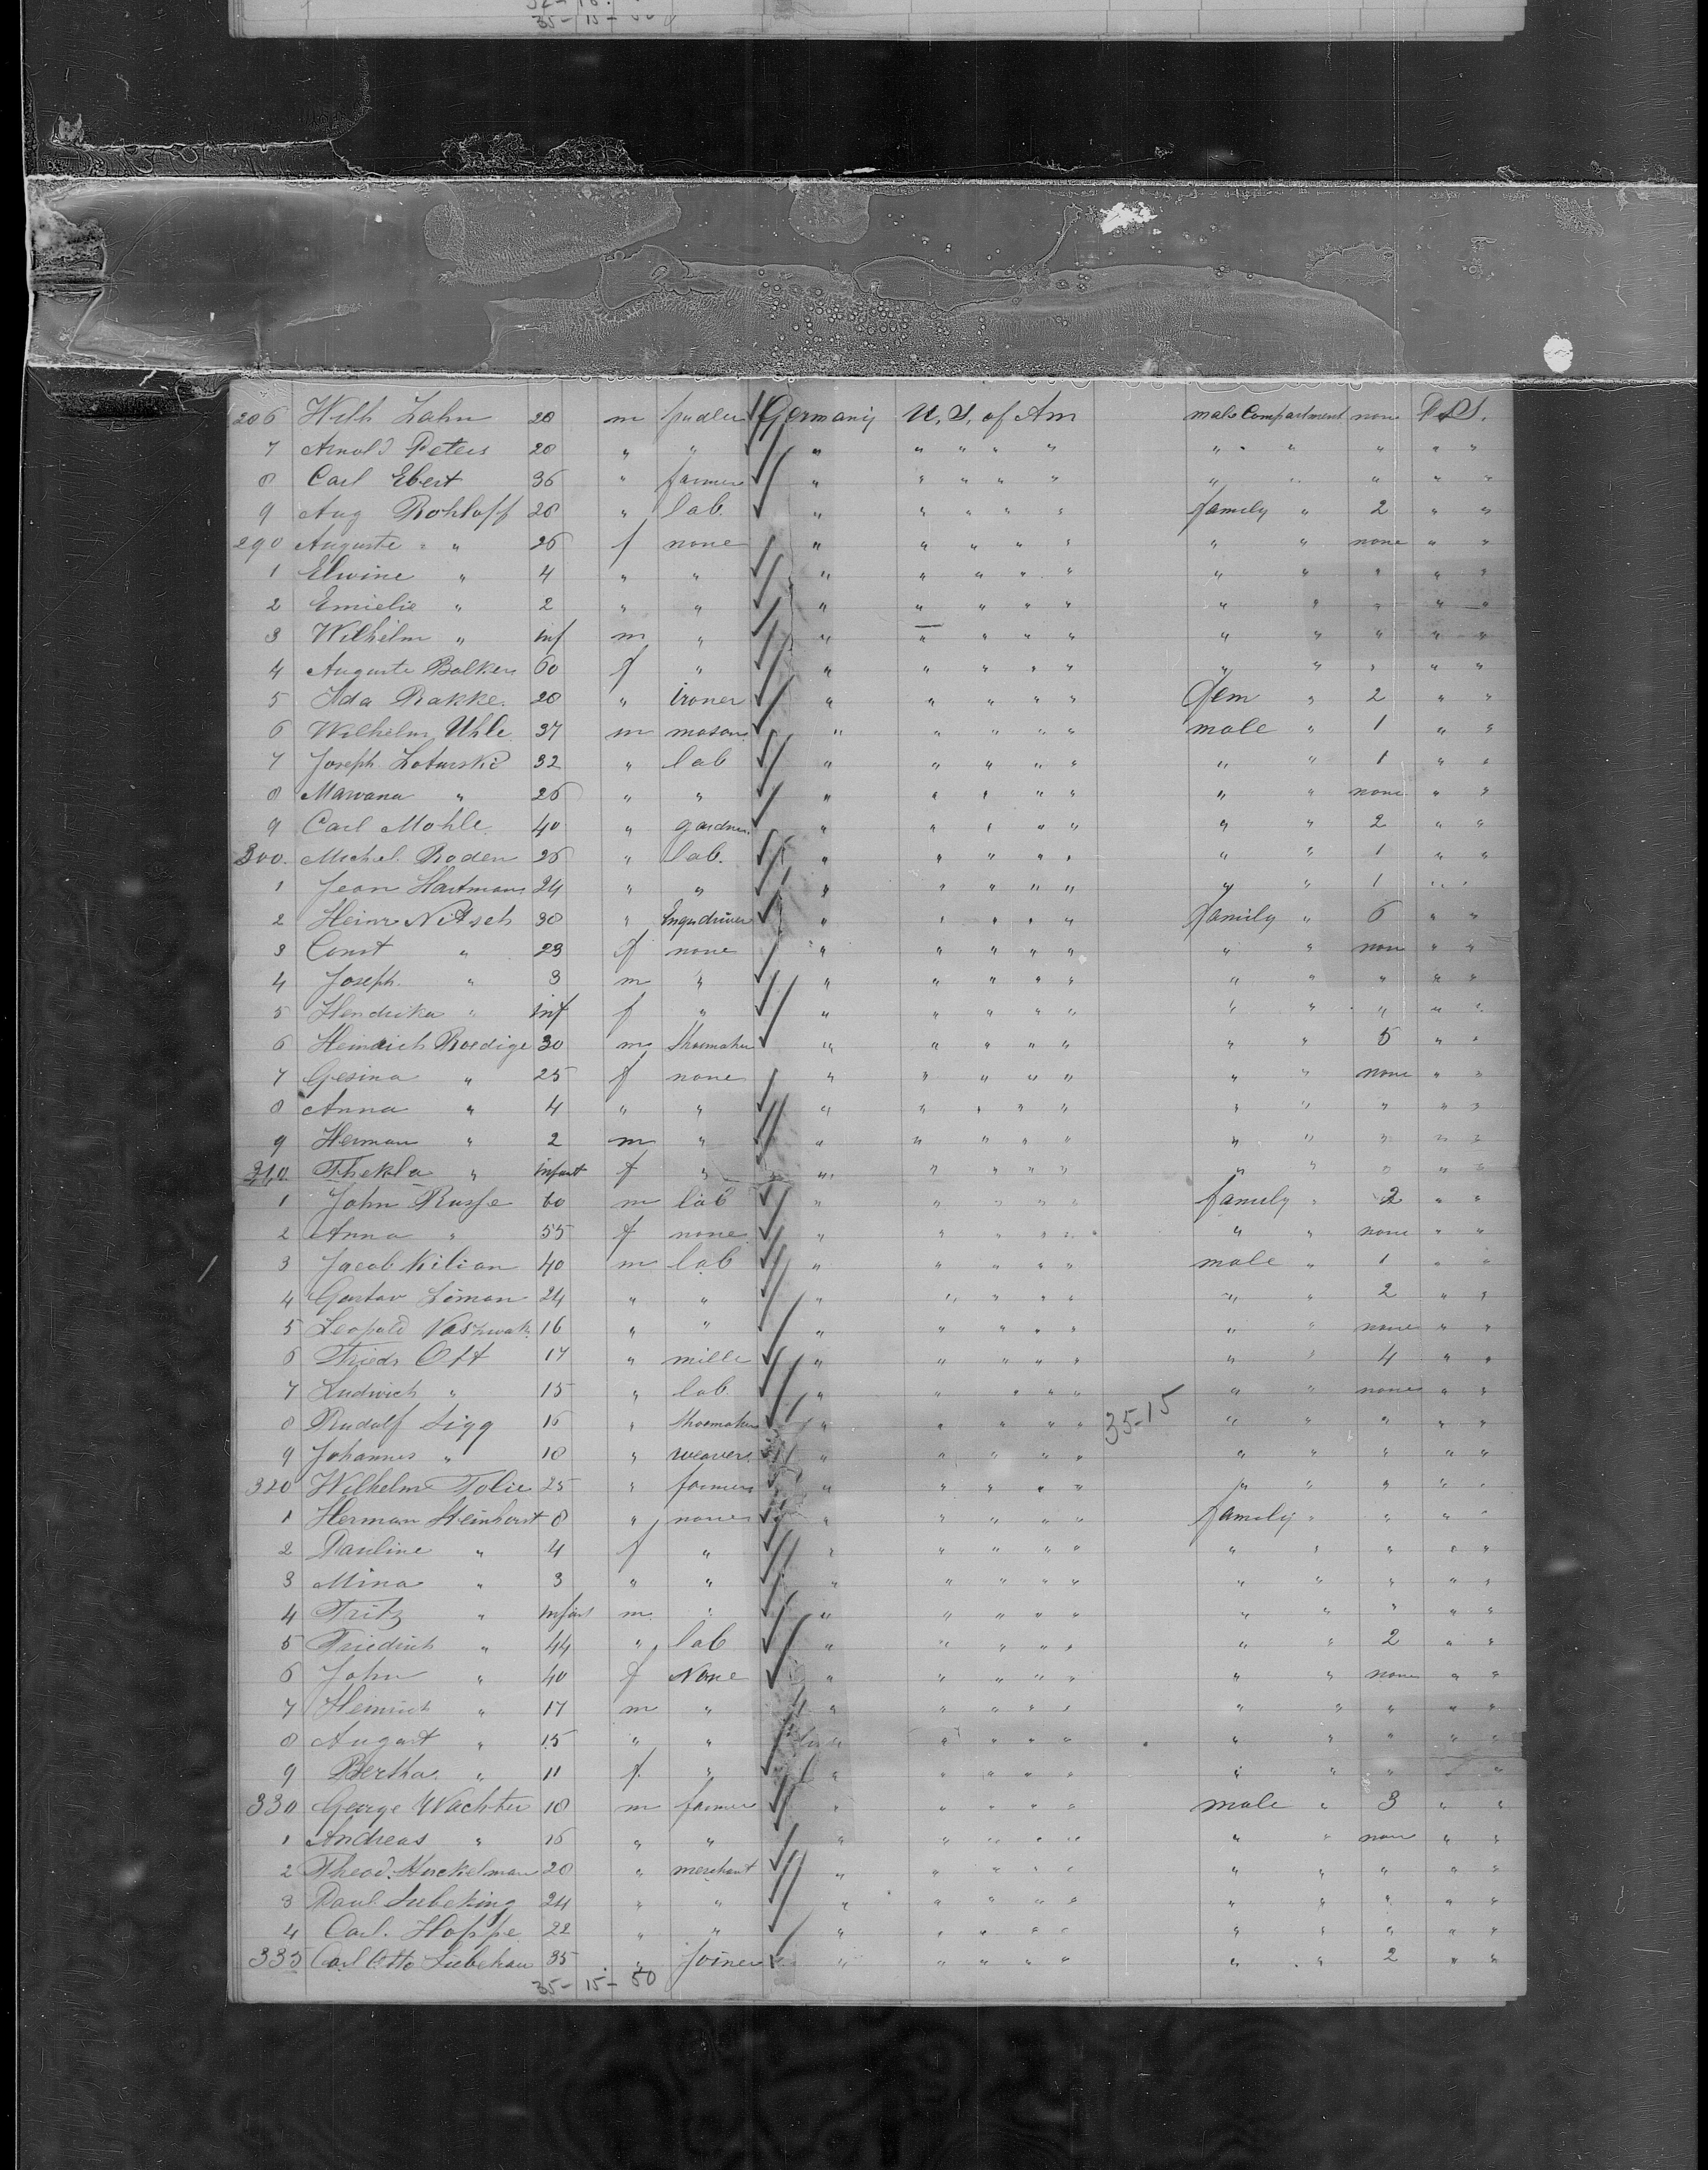 35-15-50
286 Wilh Zahn 28 m pudler Germany U. S. of Am male Compartment none P. D S.
7 Arnold Peters 28 m " " " " " " " " " "
8 Carl Ebert 36 " farmer " " " " " " " " " "
9 Aug Rohloff 28 " lab. " " " " " family " 2 " "
290 Auguste " 26 f none " " " " " " " none " "
1 Elwine " 4 " " " " " " " " " " " "
2 Emielie " 2 " " " " " " " " " " " "
3 Wilhelm " inf m " " " " " " " " " " "
4 Auguste Balken 60 f " " " " " " " " " " "
5 Ida Rakke. 28 " ironer " " " " " fem " 2 " "
6 Wilhelm Uhle 37 m mason " " " " " male " 1 " "
7 Joseph Loturski 32 " lab " " " " " " " 1 " "
8 Mariana " 26 " " " " " " " " " none " "
9 Carl Mohle. 40 " gardner. " " " " " " " 2 " "
300. Michel Roden 26 " lab. " " " " " " " 1 " "
1 Jean Hartmann 24 " " " " " " " " " 1 " "
2 Heinr Nitsch 30 " Engndriver " " " " " family " 6 " "
3 Const " 23 f none " " " " " " " non " "
4 Joseph " 3 m " " " " " " " " " " "
5 Hendrika " inf f " " " " " " " " " " "
6 Heindrich Roedige 30 m Shoemaker " " " " " " " 5 " "
7 Gesina " 25 f none " " " " " " " none " "
8 Anna " 4 " " " " " " " " " " " "
9 Herman " 2 m " " " " " " " " " " "
310 Thekla " infant f " " " " " " " " " " "
1 John Russe 60 m lab " " " " " family " 2 " "
2 Anna " 55 f none " " " " " " " none " "
3 Jacob Kilian 40 m lab " " " " " male " 1 " "
4 Gustav Liman 24 " " " " " " " " " 2 " "
5 Leopold 16 " " " " " " " " " none " "
6 Frieds Ott 17 " mille " " " " " " " 4 " "
7 Ludwich " 15 " lab. " " " " " " " none " "
8 Rudolf Sigg 16 " Shoemaker " " " " " 35-15 " " " " "
9 Johannes " 18 " weaver. " " " " " " " " " "
320 Wilhelm Tolie 25 " farmer " " " " " " " " " "
1 Herman Steinhorst 8 " none " " " " " family " " " "
2 Pauline " 4 f " " " " " " " " " " "
3 Mina " 3 " " " " " " " " " " " "
4 Fritz " Infant m. " " " " " " " " " " "
5 Friedrich " 44 " lab " " " " " " " 2 " "
6 John " 40 f None " " " " " " " none " "
7 Heinrich " 17 m " " " " " " " " " " "
8 August " 15 " " " " " " " " " " " "
9 Bertha " 11 f. " " " " " " " " " " "
330 George Wachter 18 m farmer " " " " " male " 3 " "
1 Andreas " 16 " " " " " " " " " non " "
2 Theod. Hockelman 28 " merchant " " " " " " " " " "
3 Paul Lubeking 24 " " " " " " " " " " " "
4 Carl. Hoppe 22 " " " " " " " " " " " "
335 Carl Otto Liebehau 35 " Joiner " " " " " " " 2 " "
35-15-50